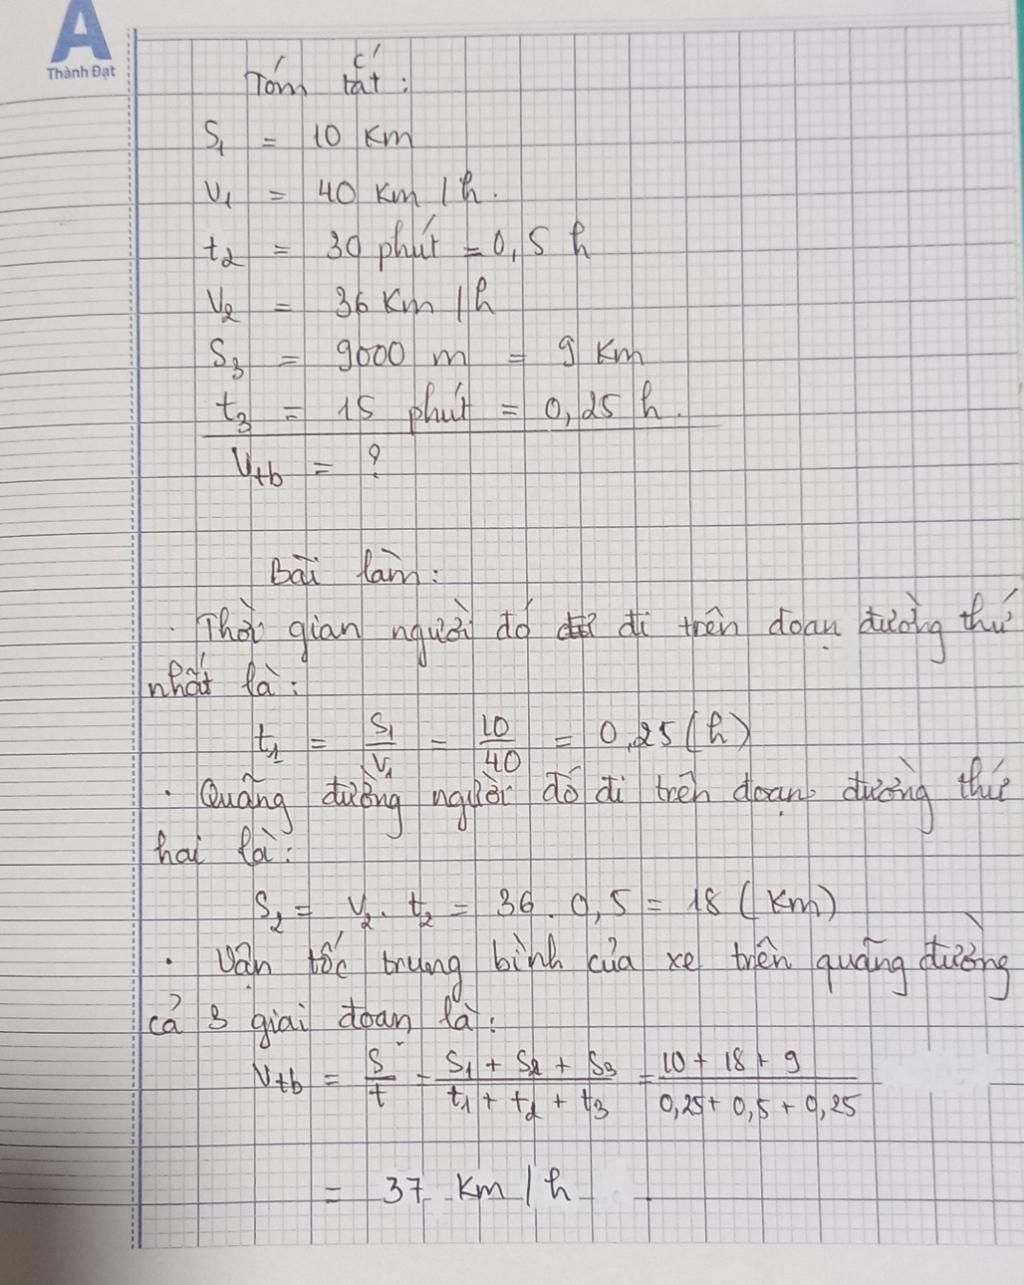 A
Thành Đạt
Tóm tắt:
S₁ = 10 Km
V₁ = 40 Km/h.
t₂ = 30 phút = 0,5 h
V₂ = 36 Km/h
S₃ = 9000 m = 9 Km
t₃ = 15 phút = 0,25 h.
Vtb = ?
Bài làm:
. Thời gian người đó đi trên đoạn đường thứ
nhất là:
t₁ = S₁/V₁ = 10/40 = 0,25 (h)
. Quãng đường người đó đi trên đoạn đường thứ
hai là:
S₂ = V₂. t₂ = 36. 0,5 = 18 (Km)
. Vận tốc trung bình của xe trên quãng đường
cả 3 giai đoạn là:
Vtb = S/t = (S₁ + S₂ + S₃)/(t₁ + t₂ + t₃) = (10 + 18 + 9)/(0,25 + 0,5 + 0,25)
= 37 Km/h